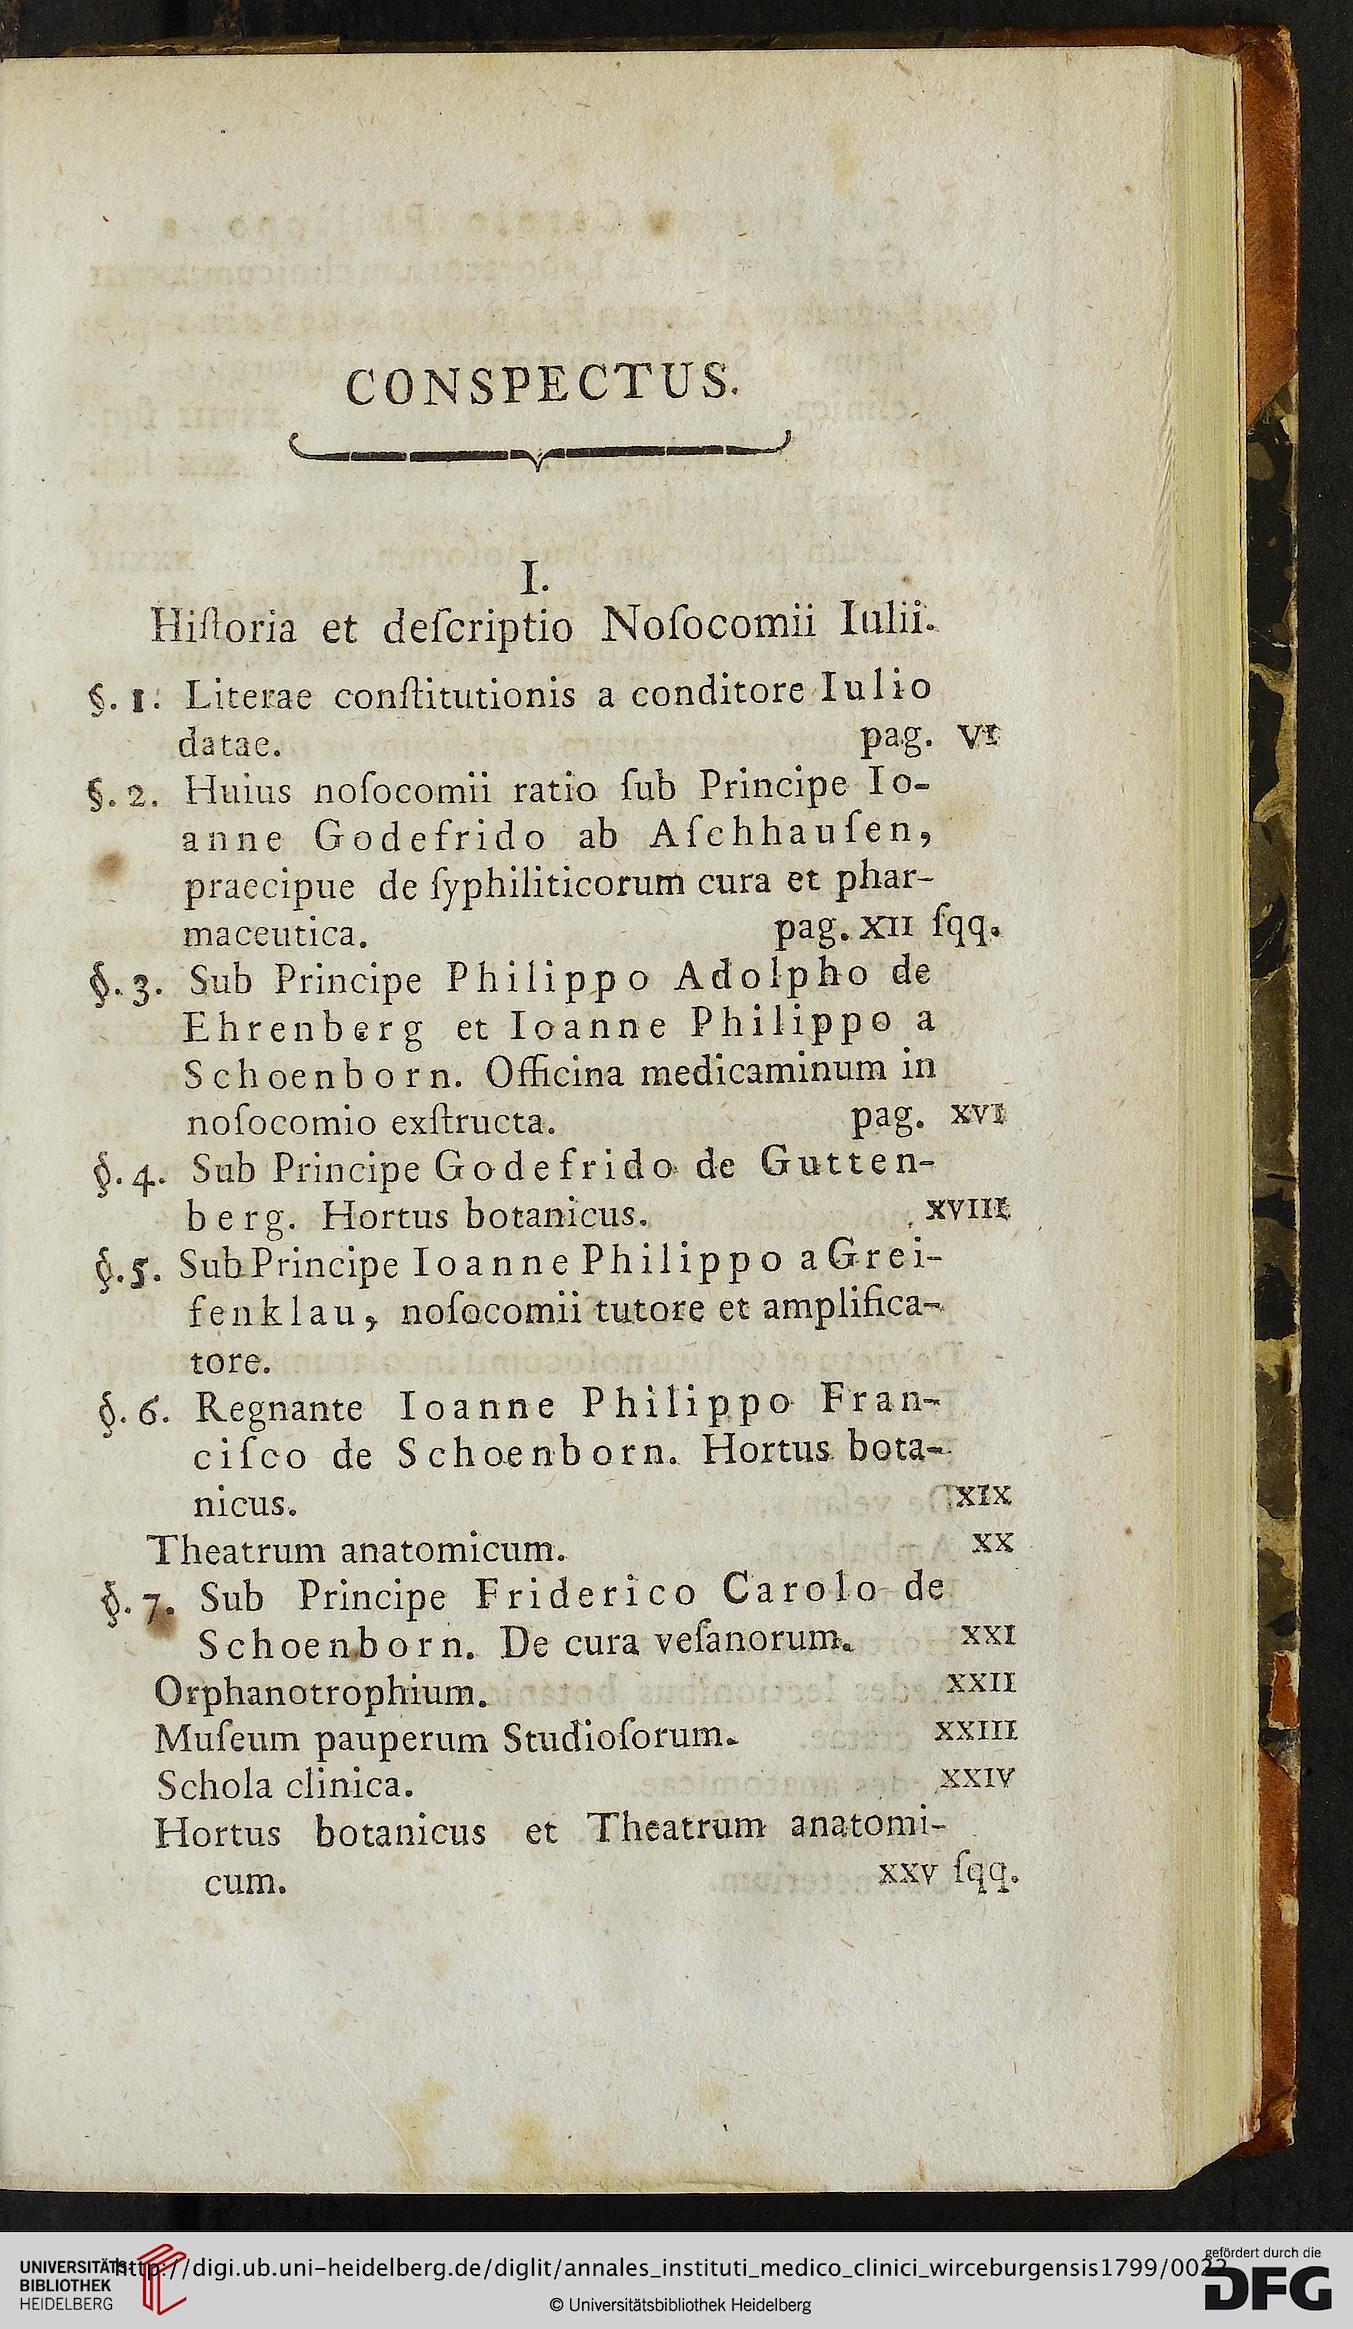 CONSPECTUS.
I.
Hiſtoria et deſcriptio Noſocomii Iulii.
§. 1. Literae conſtitutionis a conditore Iulio
datae. pag. VI
§. 2. Huius noſocomii ratio ſub Principe Io-
anne Godefrido ab Aſchhauſen,
praecipue de ſyphiliticorum cura et phar-
maceutica. pag. XII ſqq.
§. 3. Sub Principe Philippo Adolpho de
Ehrenberg et Ioanne Philippo a
Schoenborn. Officina medicaminum in
noſocomio exſtructa. pag. XVI
§. 4. Sub Principe Godefrido de Gutten-
berg. Hortus botanicus. XVIII
§. 5. Sub Principe Ioanne Philippo a Grei-
fenklau, noſocomii tutore et amplifica-
tore.
§. 6. Regnante Ioanne Philippo Fran-
ciſco de Schoenborn. Hortus bota-
nicus. XIX
Theatrum anatomicum. XX
§. 7. Sub Principe Friderico Carolo de
Schoenborn. De cura veſanorum. XXI
Orphanotrophium. XXII
Muſeum pauperum Studioſorum. XXIII
Schola clinica. XXIV
Hortus botanicus et Theatrum anatomi-
cum. XXV ſqq.
UNIVERSITÄTS-
BIBLIOTHEK
HEIDELBERG
http://digi.ub.uni-heidelberg.de/diglit/annales_instituti_medico_clinici_wirceburgensis1799/0022
© Universitätsbibliothek Heidelberg
gefördert durch die
DFG